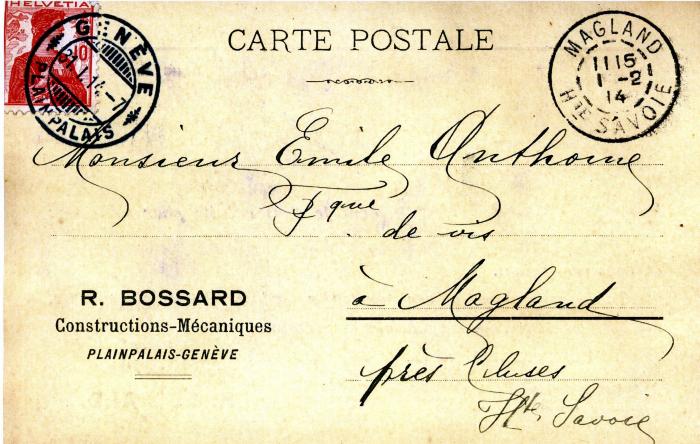 HELVETIA
10
GENÈVE
31.I.14-7
PLAINPALAIS
CARTE POSTALE
MAGLAND
11 15
1 -2
14
HTE SAVOIE
Monsieur Emile Anthoine
Fque
de vis
à Magland
près Cluses
Hte Savoie
R. BOSSARD
Constructions-Mécaniques
PLAINPALAIS-GENÈVE